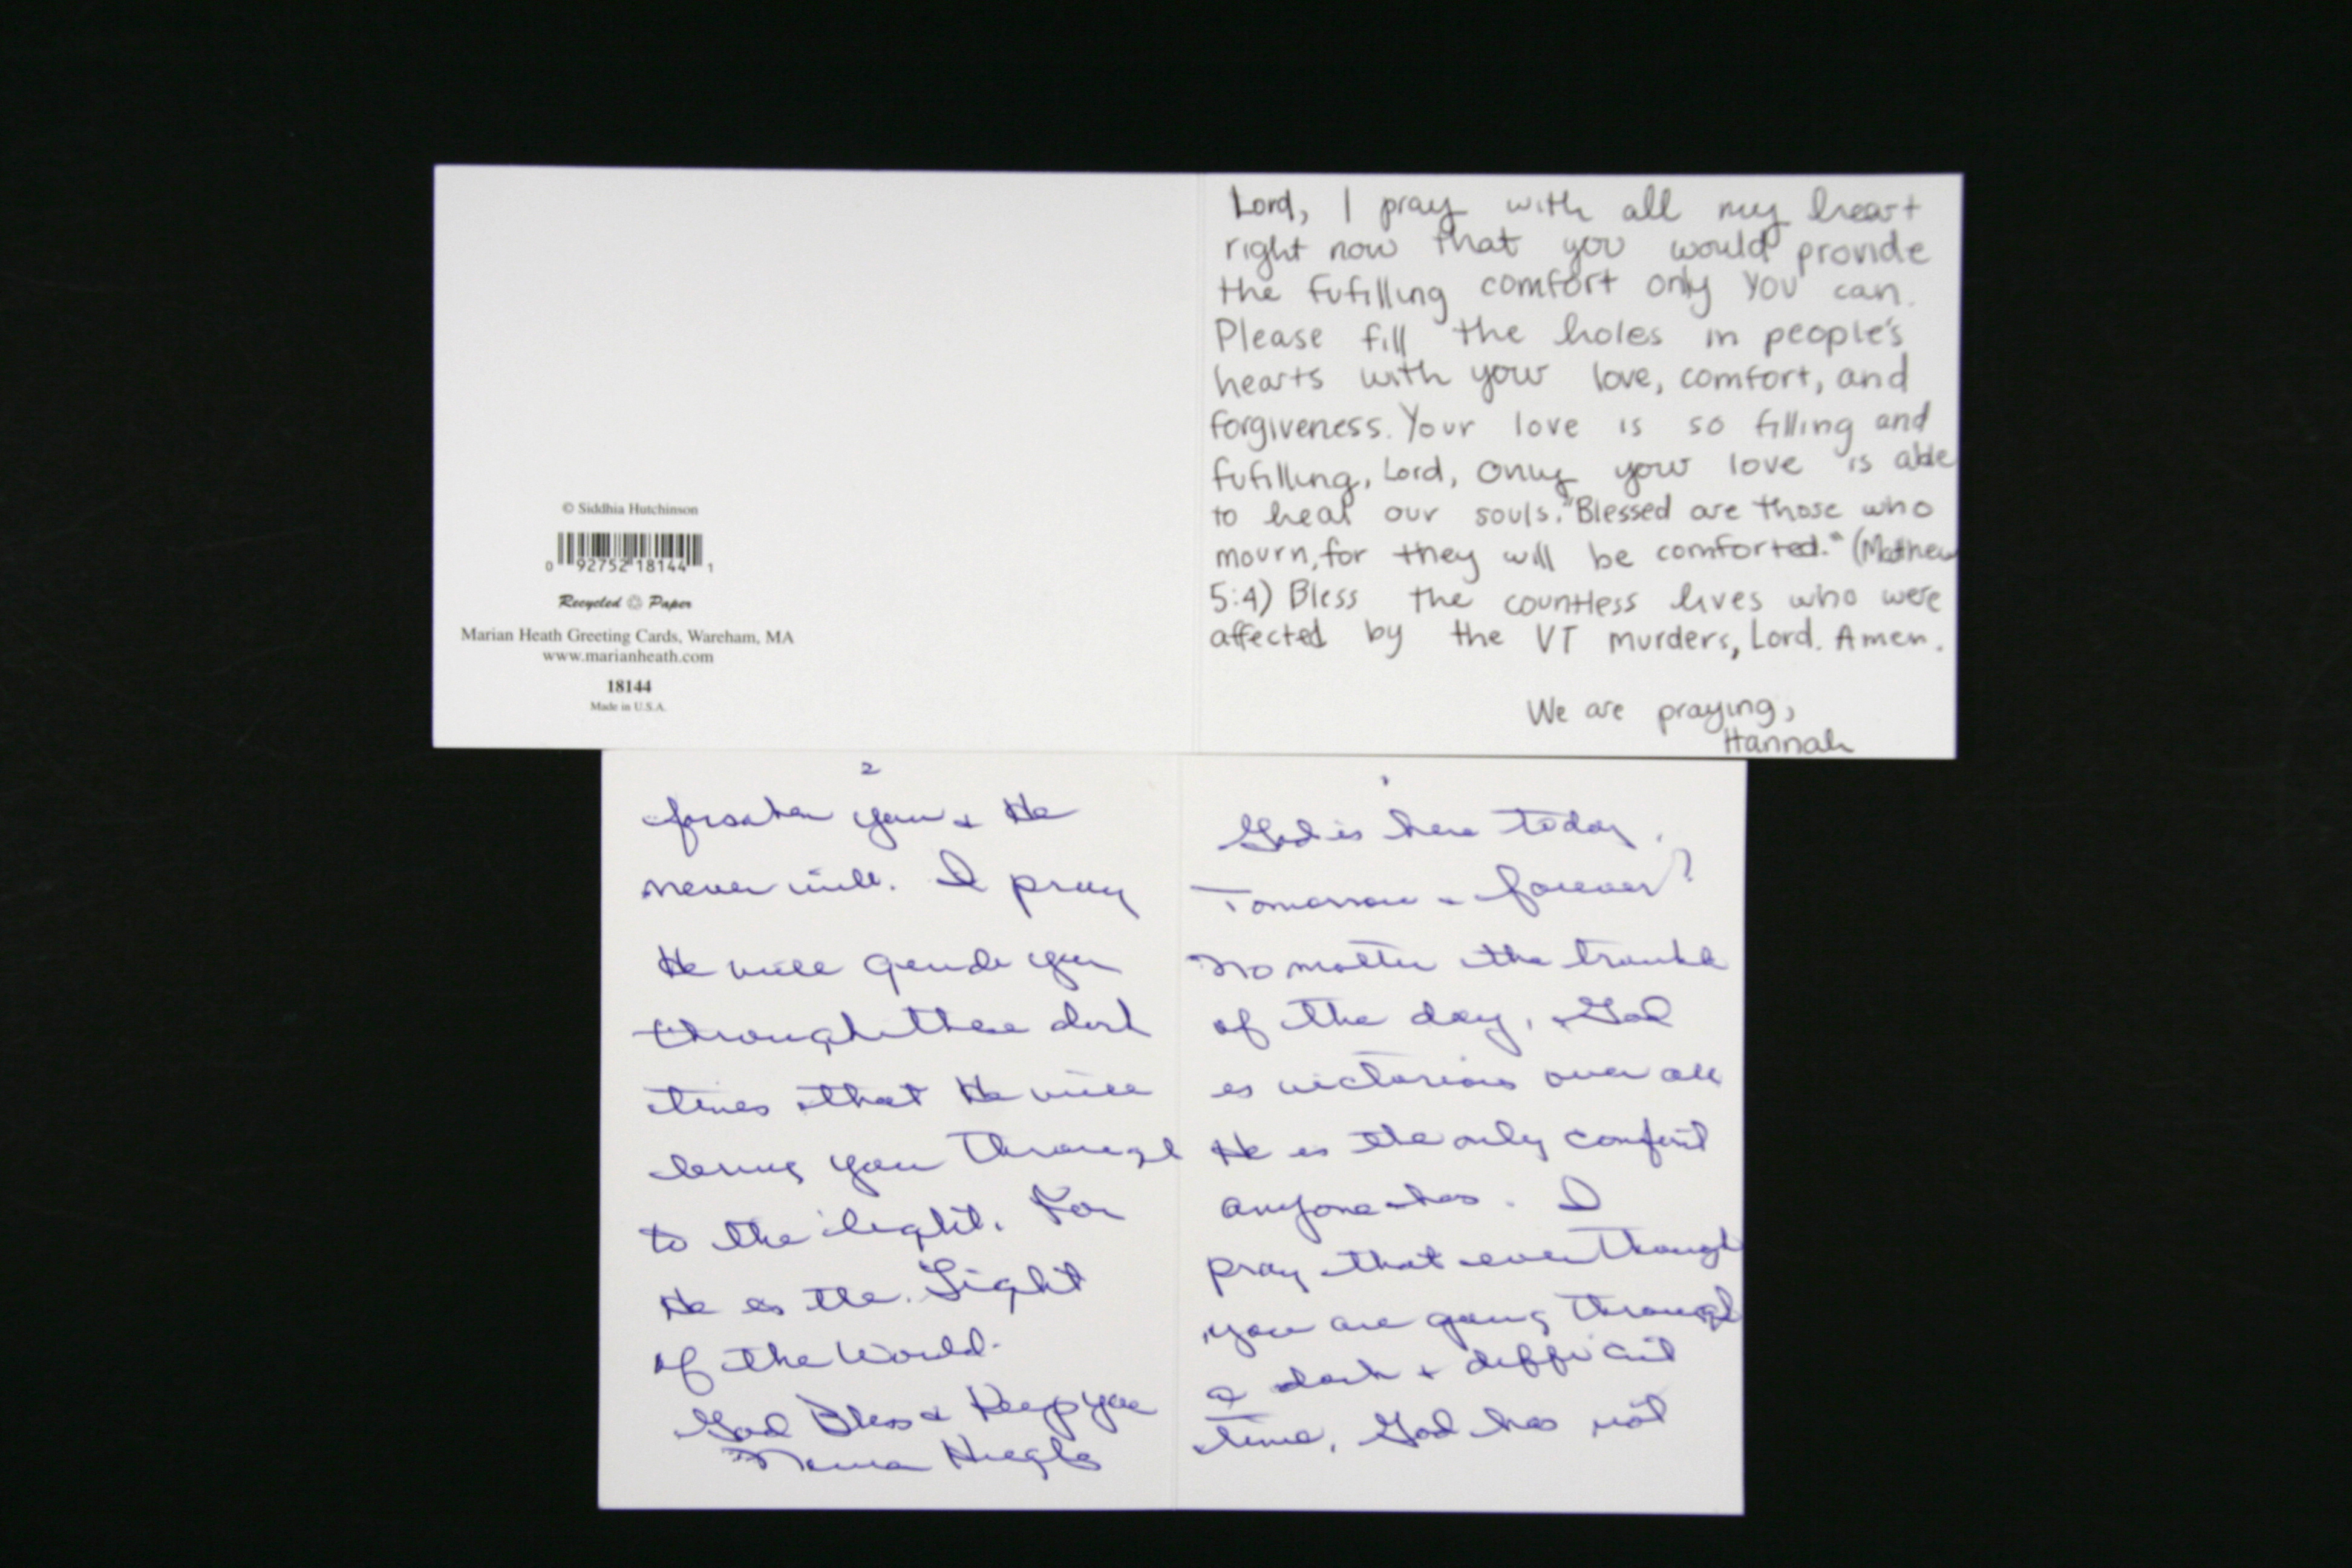 © Siddhia Hutchinson
0 92752 18144 1
Recycled Paper
Marian Heath Greeting Cards, Wareham, MA
www.marianheath.com
18144
Made in U.S.A.
Lord, I pray with all my heart
right now that you would provide
the fufilling comfort only You can.
Please fill the holes in people's
hearts with your love, comfort, and
forgiveness. Your love is so filling and
fufilling, Lord, only your love is able
to heal our souls. "Blessed are those who
mourn, for they will be comforted." (Mathew
5:4) Bless the countless lives who were
affected by the VT murders, Lord. Amen.
We are praying,
Hannah
1
God is here today,
Tomorrow & forever!
No matter the trouble
of the day, God
is victorious over all
He is the only comfort
anyone has. I
pray that even though
you are going through
a dark & difficult
time, God has not
2
forsaken you & He
never will. I pray
He will guide you
through these dark
times that He will
bring you through
to the light. For
He is the Light
of the World.
God Bless & Keep you